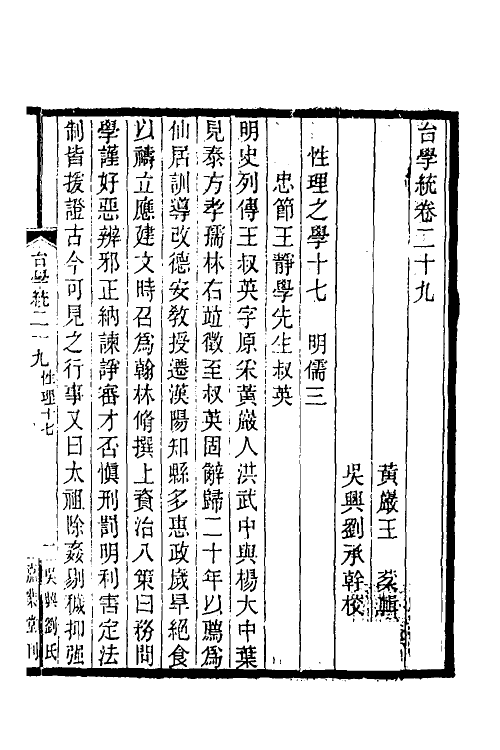 台學統卷二十九
黃巖王　棻輯
吳興劉承幹校
性理之學十七　明儒三
忠節王靜學先生叔英
明史列傳王叔英字原采黃巖人洪武中與楊大中葉
見泰方孝孺林右竝徵至叔英固辭歸二十年以薦爲
仙居訓導改德安教授遷漢陽知縣多惠政歲旱絕食
以禱立應建文時召爲翰林脩撰上資治八策曰務問
學謹好惡辨邪正納諫諍審才否愼刑罰明利害定法
制皆援證古今可見之行事又曰太祖除姦剔穢抑强
台學統二十九 性理十七
吳興劉氏
嘉業堂刊